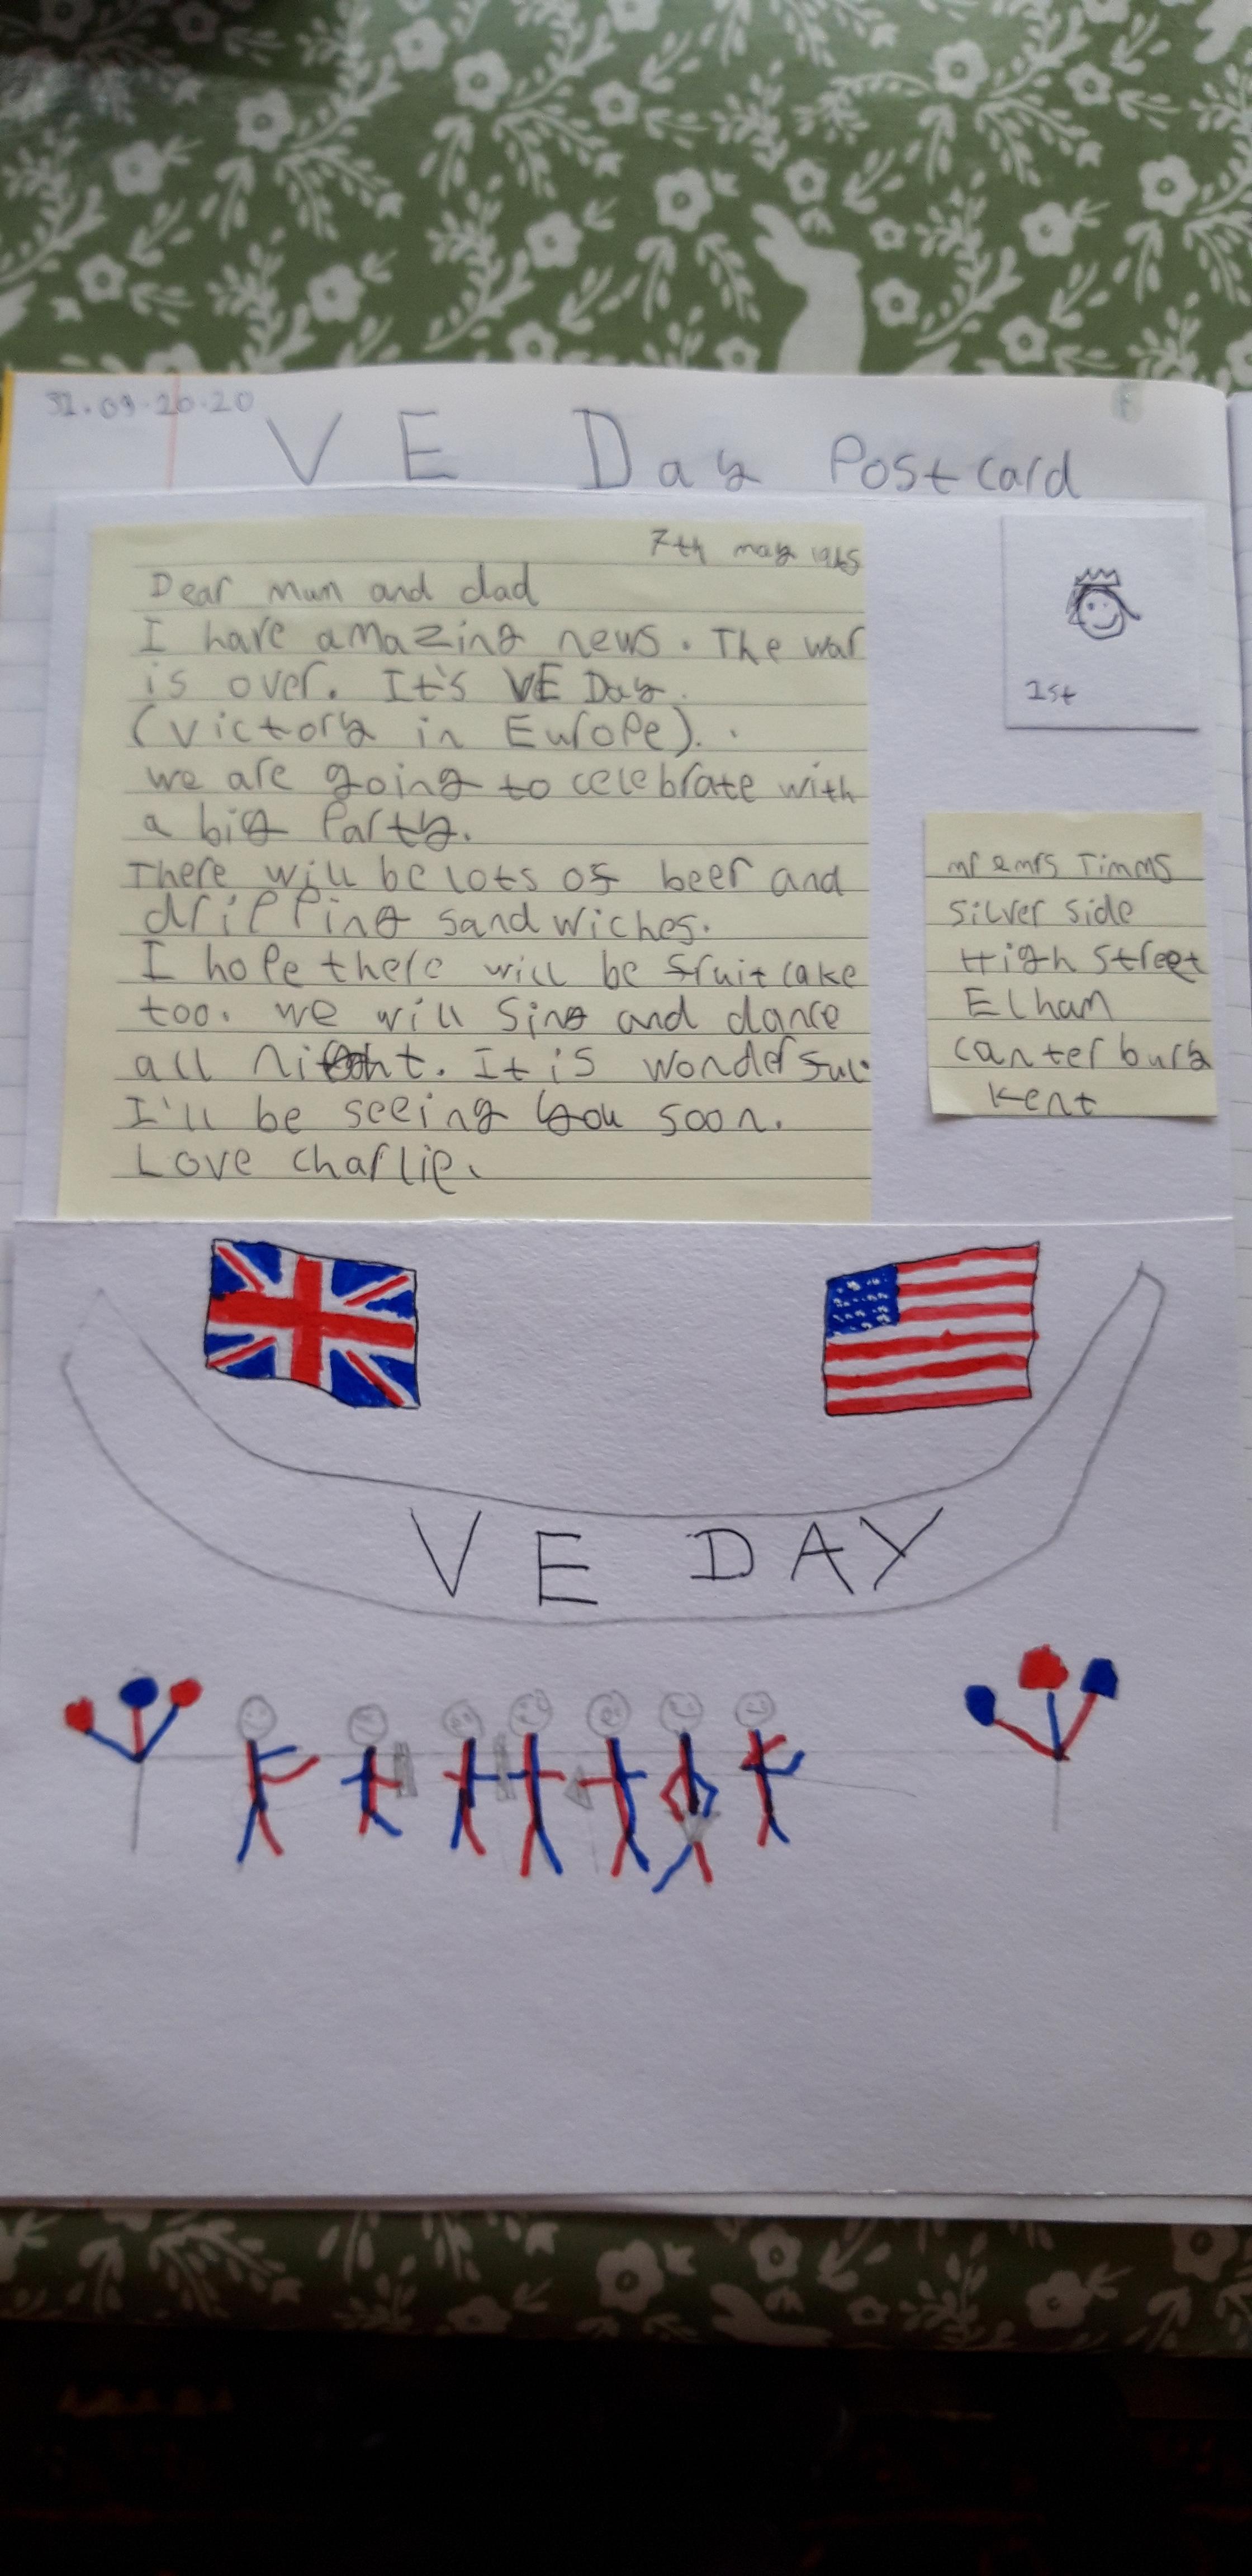 31.03.2020
VE Day Postcard
7th may 1945
Dear mum and dad
I have amazing news. The war
is over. It's VE Day.
(victory in Europe).
we are going to celebrate with
a big Party.
There will be lots of beer and
dripping sandwiches.
I hope there will be fruit cake
too. we will sing and dance
all night. It is wonderful.
I'll be seeing you soon.
Love Charlie.
1st
mr & mrs Timms
silver side
High Street
Elham
canterbury
Kent
VE DAY